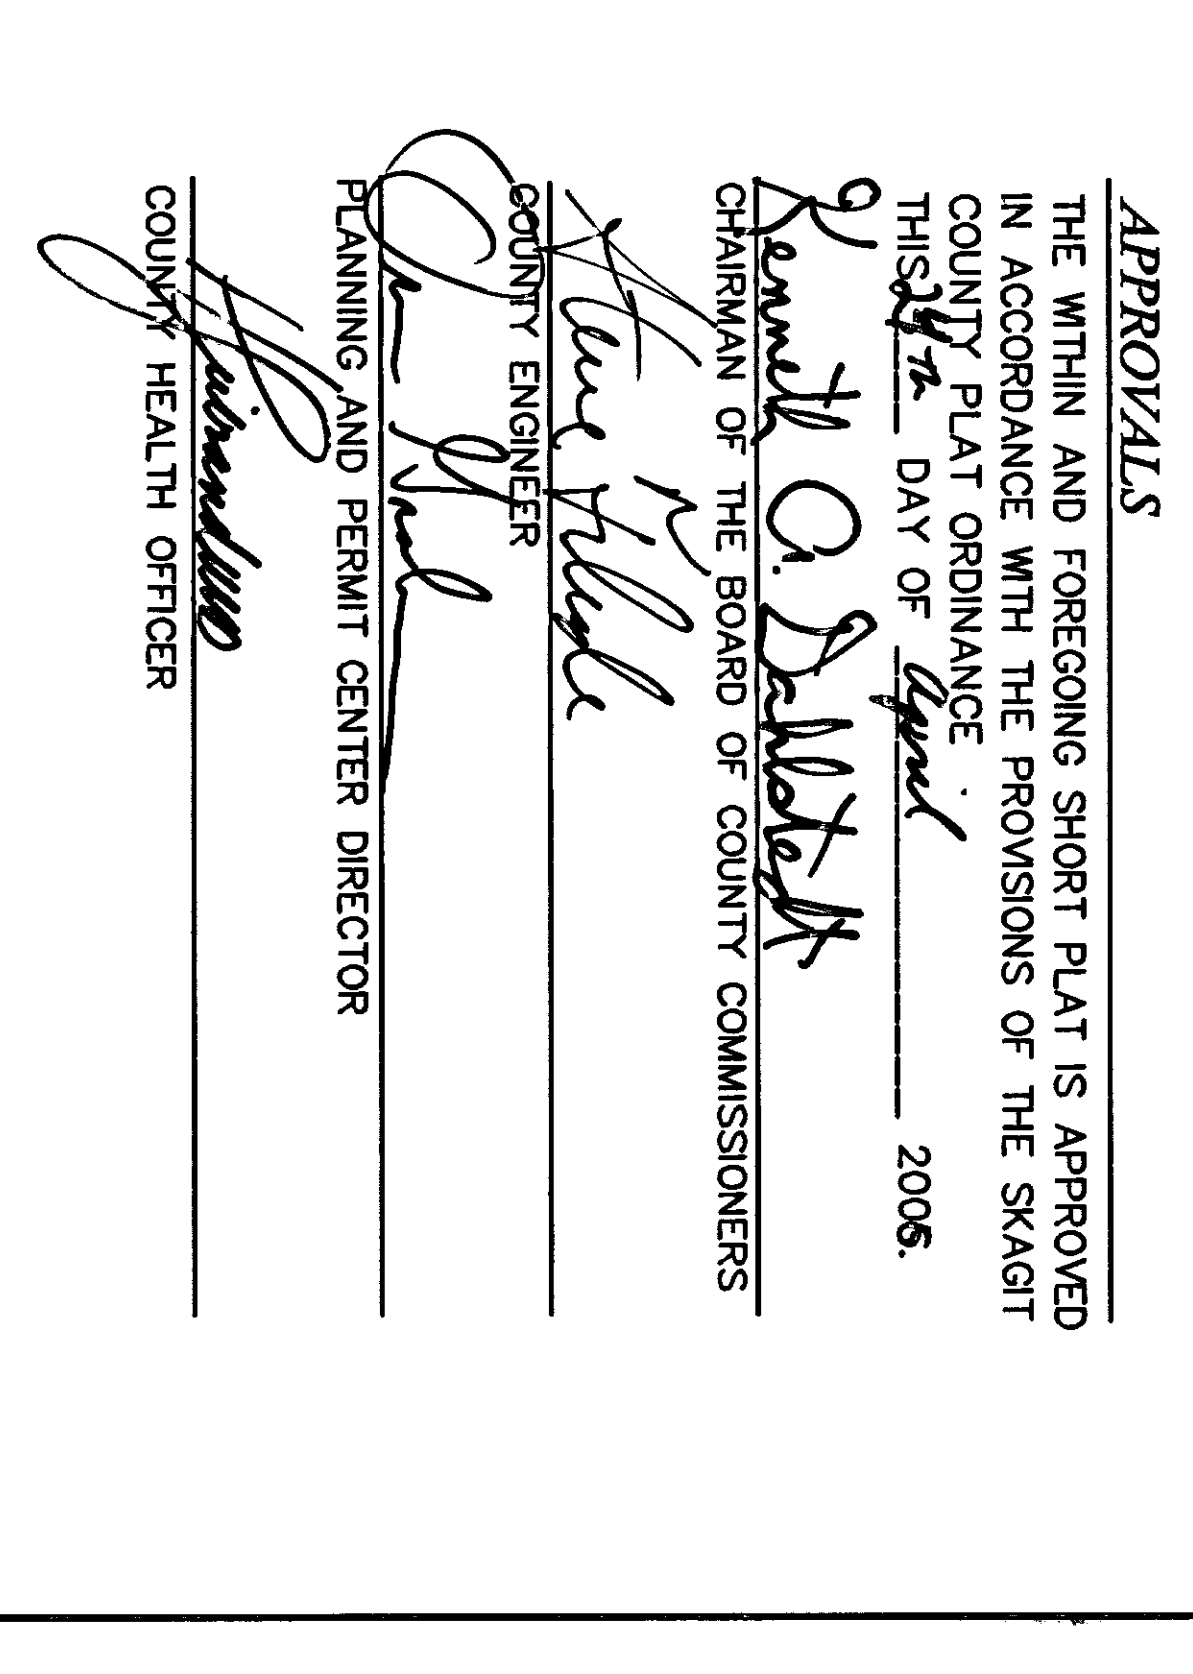 APPROVALS
THE WITHIN AND FOREGOING SHORT PLAT IS APPROVED
IN ACCORDANCE WITH THE PROVISIONS OF THE SKAGIT
COUNTY PLAT ORDINANCE
THIS 24th DAY OF April 2006.
Kenneth A. Dahlstedt
CHAIRMAN OF THE BOARD OF COUNTY COMMISSIONERS
COUNTY ENGINEER
PLANNING AND PERMIT CENTER DIRECTOR
COUNTY HEALTH OFFICER